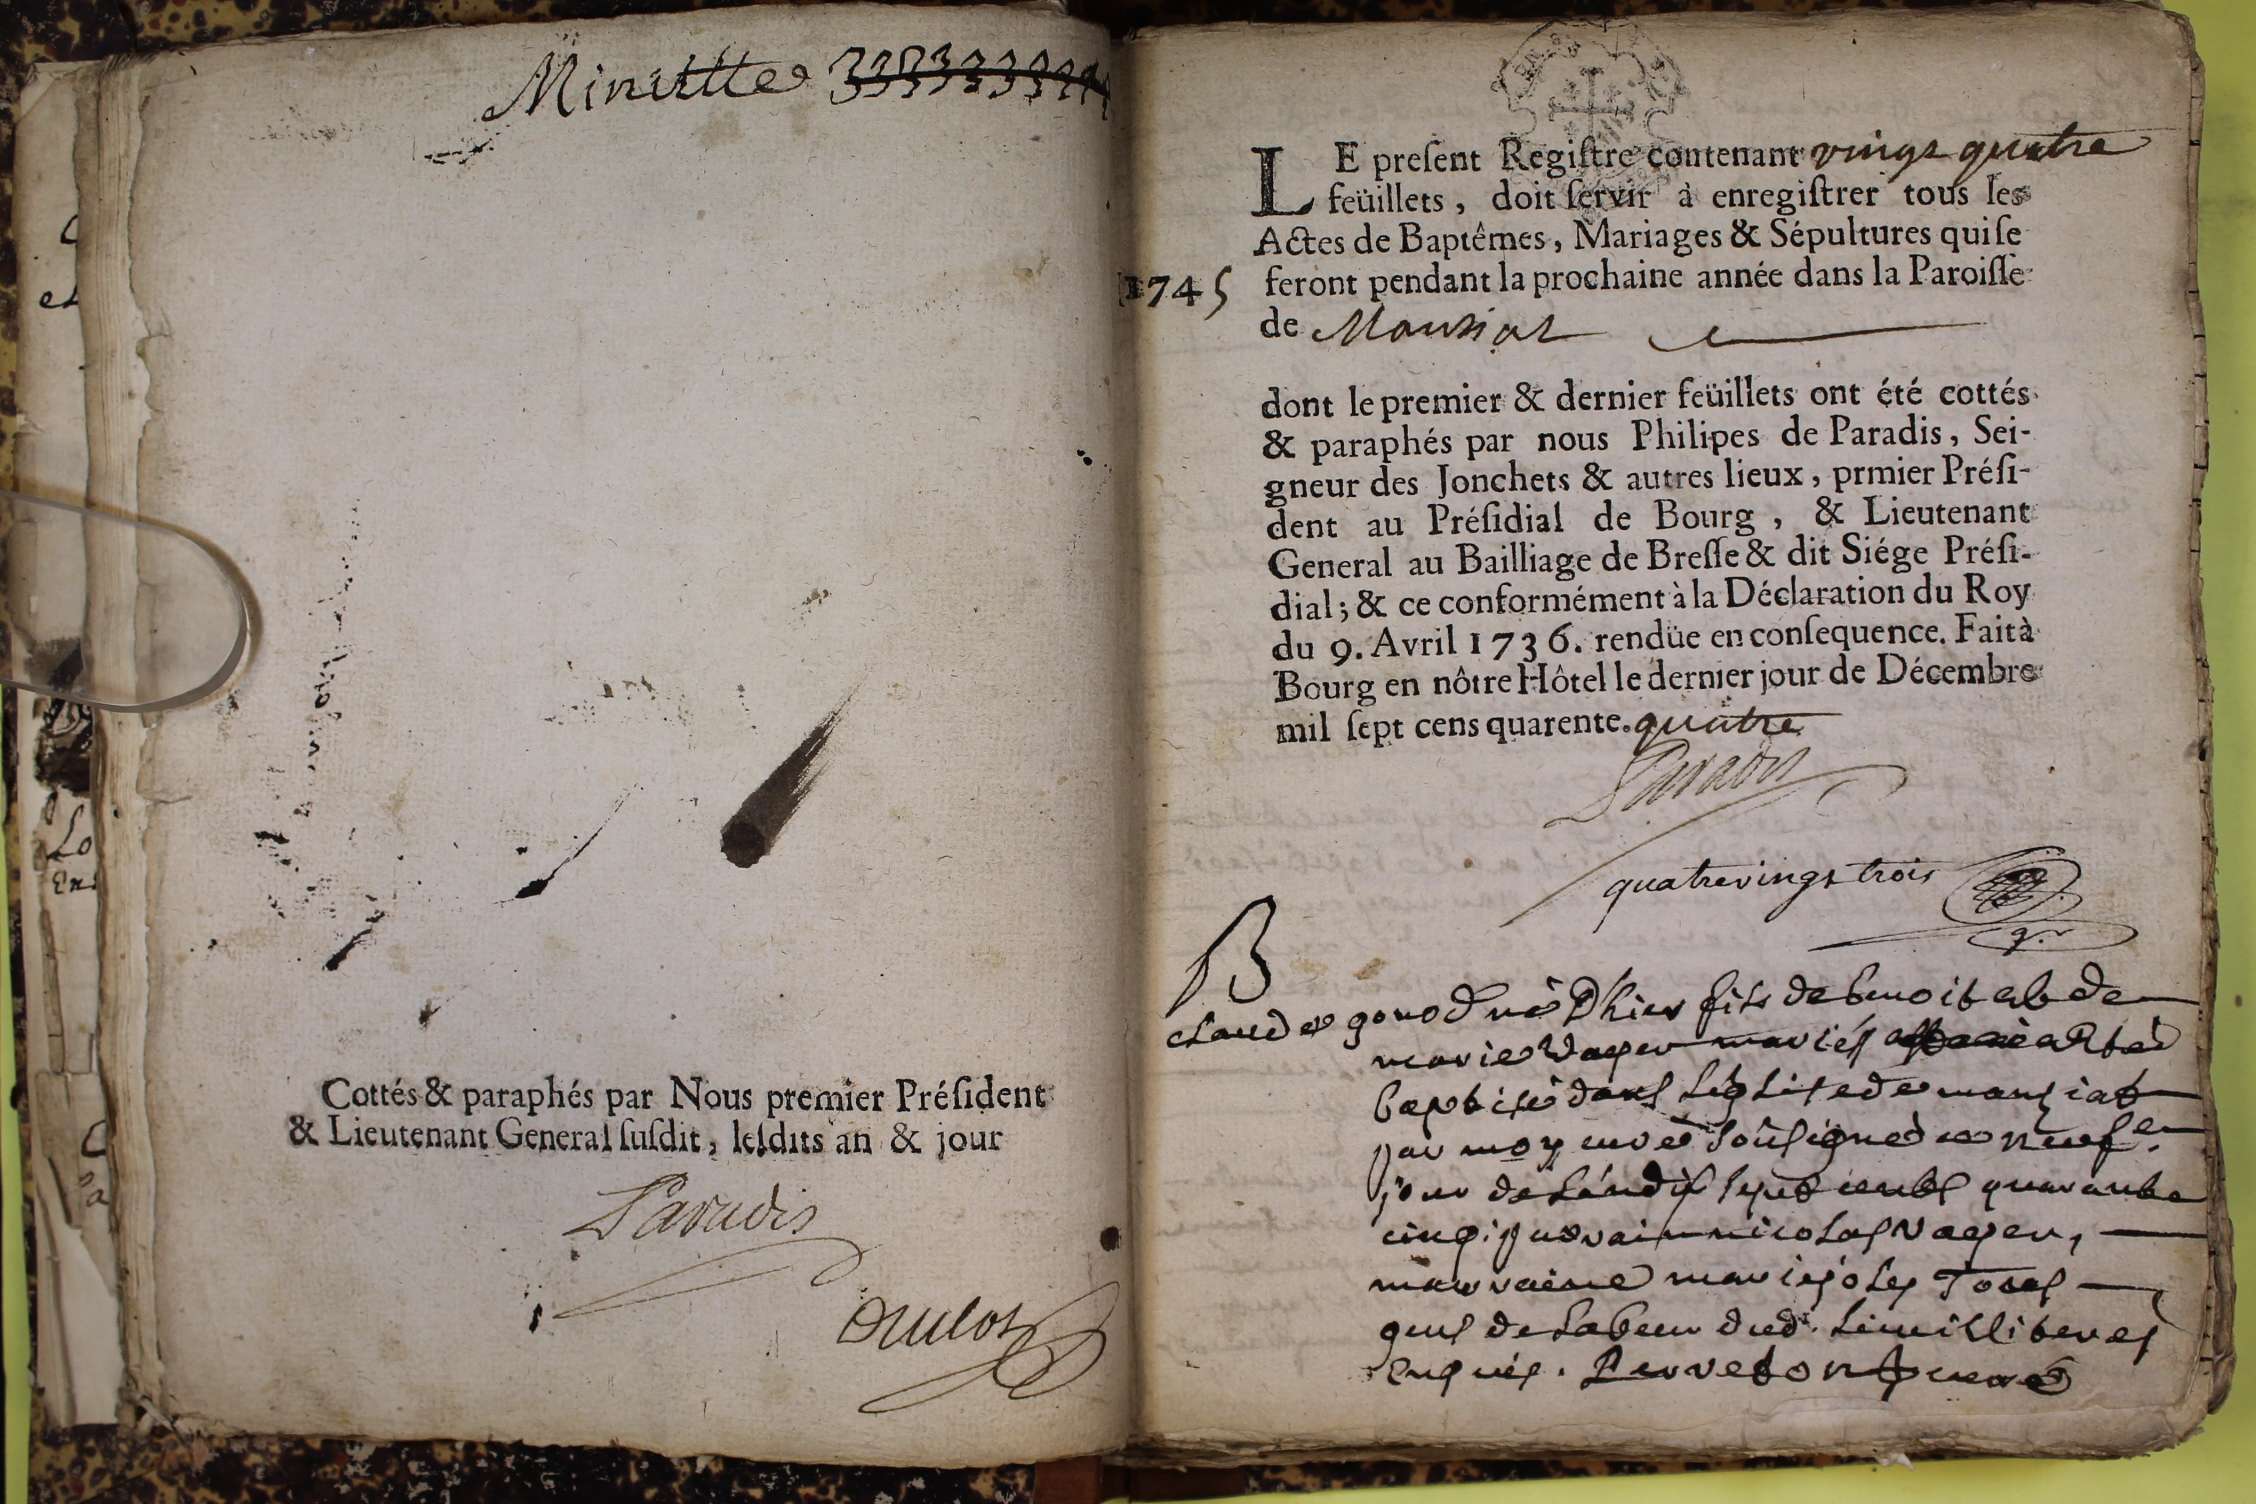 Minutte
Cottés & paraphés par Nous premier Préſident
& Lieutenant General ſuſdit, leſdits an & jour
Paradis
1745
LE preſent Regiſtre contenant vingt quatre
feüillets, doit ſervir à enregiſtrer tous les
Actes de Baptêmes, Mariages & Sépultures qui ſe
feront pendant la prochaine année dans la Paroiſſe
de Manziat
dont le premier & dernier feüillets ont été cottés
& paraphés par nous Philipes de Paradis, Sei-
gneur des Jonchets & autres lieux, prmier Préſi-
dent au Préſidial de Bourg, & Lieutenant
General au Bailliage de Breſſe & dit Siége Préſi-
dial; & ce conformément à la Déclaration du Roy
du 9. Avril 1736. rendüe en conſequence. Fait à
Bourg en nôtre Hôtel le dernier jour de Décembre
mil ſept cens quarente. quatre
Paradis
quatrevingt trois
B
claude gonod né d'hier fils de benoit et de
marie vayer mariés a été
baptisé dans l'église de manziat
par moy curé soussigné le neuf
jour de l'an dix sept cents quarante
cinq. parrain nicolas vayer,
marraine marie tous
gens de labeur dud. lieu illiteres
enquis. curé